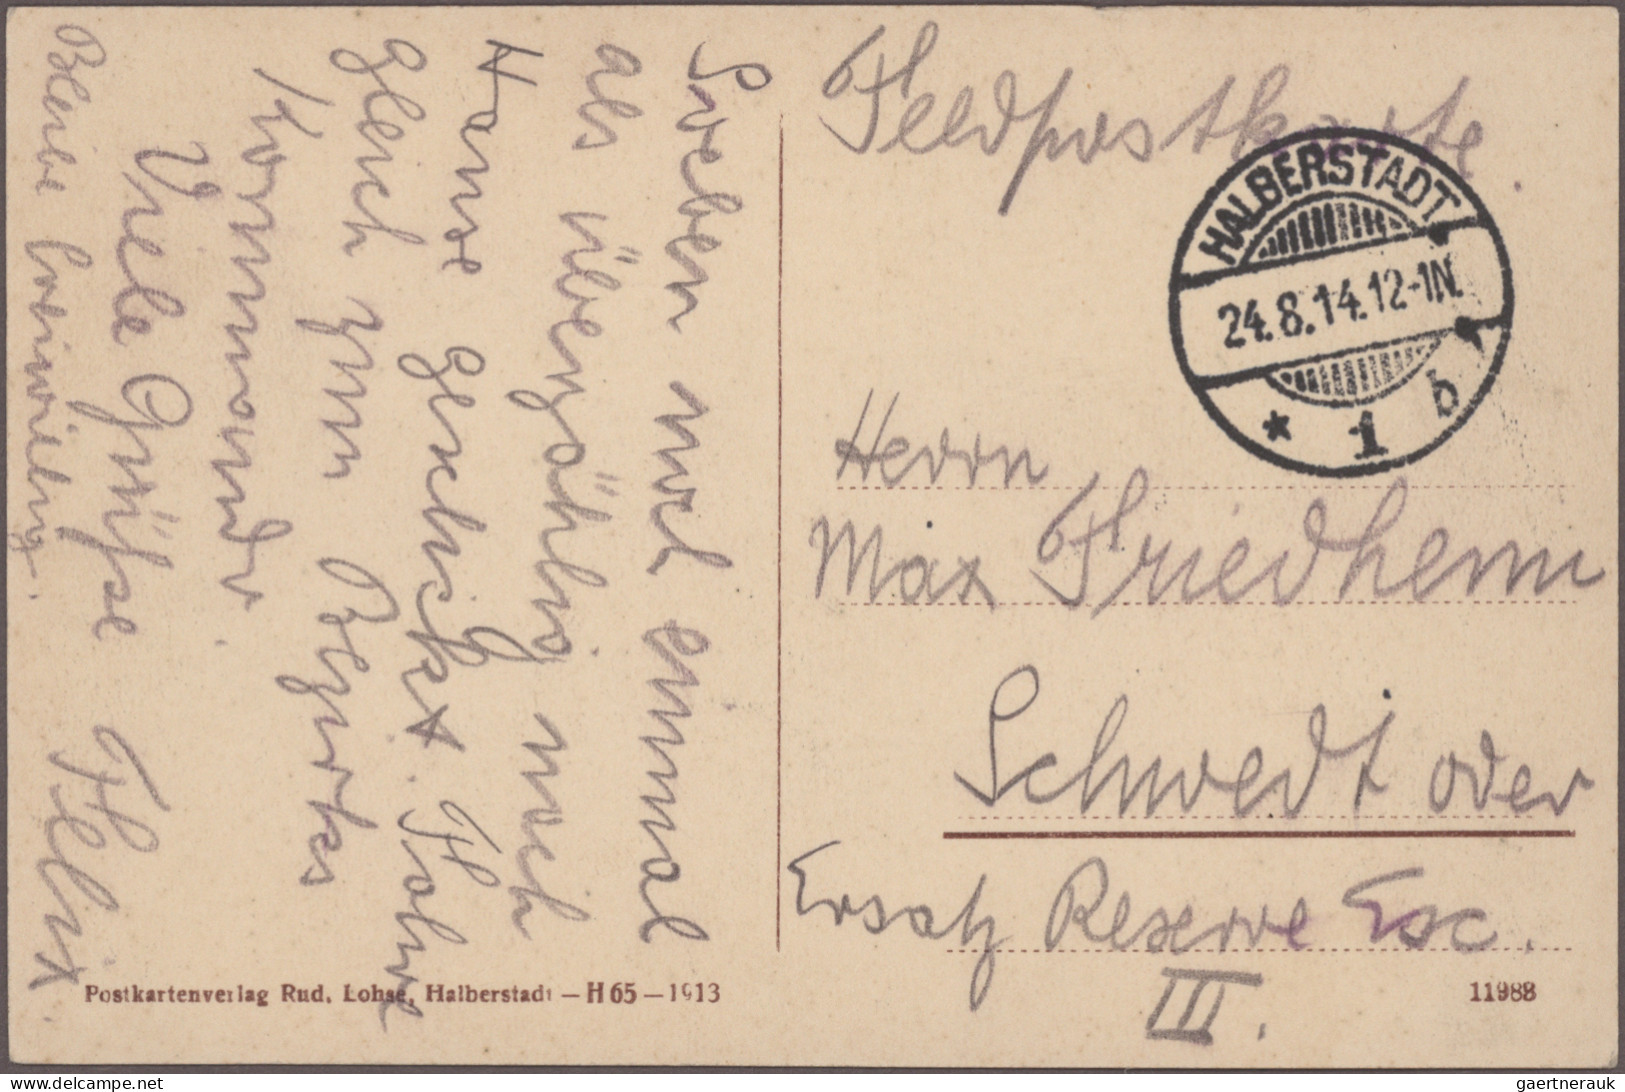 Feldpostkarte.
HALBERSTADT
24.8.14.12-1N.
* 1 b
Herrn
Max Friedheim
Schwedt Oder
Ersatz Reserve Esc.
III.
Soeben noch einmal
als überzählig nach
Hause geschickt. Fahre
gleich zum Bezirks
Kommando.
Viele Grüße Felix.
Bleibe freiwillig.
Postkartenverlag Rud. Lohse, Halberstadt – H 65 – 1913
11988
gaertnerauk
delcampe.net